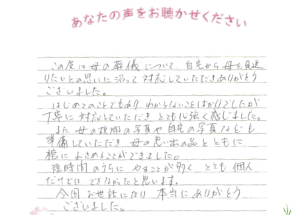 あなたの声をお聴かせください
この度は母の葬儀について 自宅から母を見送
りたいとの思いに沿って対応していただきありがとう
ございました。
はじめてのことでもあり わからないことばかりでしたが
丁寧に対応していただき とても心強く感じました。
また 母の の写真や自宅の写真なども
準備していただき 母の思い出の品とともに
棺におさめることができました。
短時間のうちに やることが多く とても個人
だけでは できなかったと思います。
今回お世話になり 本当に ありがとう
ございました。